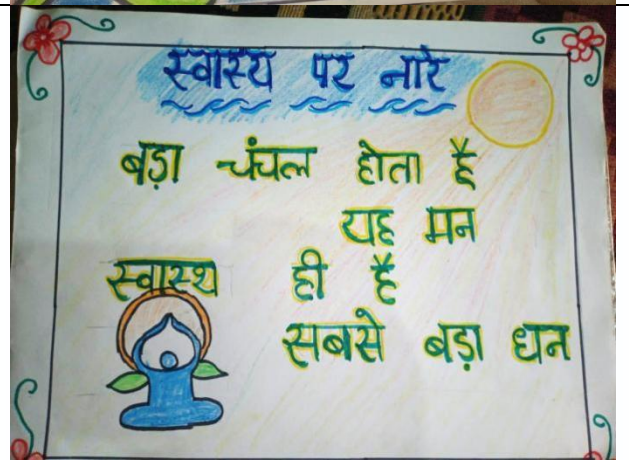 स्वास्य पर नारे
बड़ा चंचल होता है
यह मन
स्वास्थ ही है
सबसे बड़ा धन